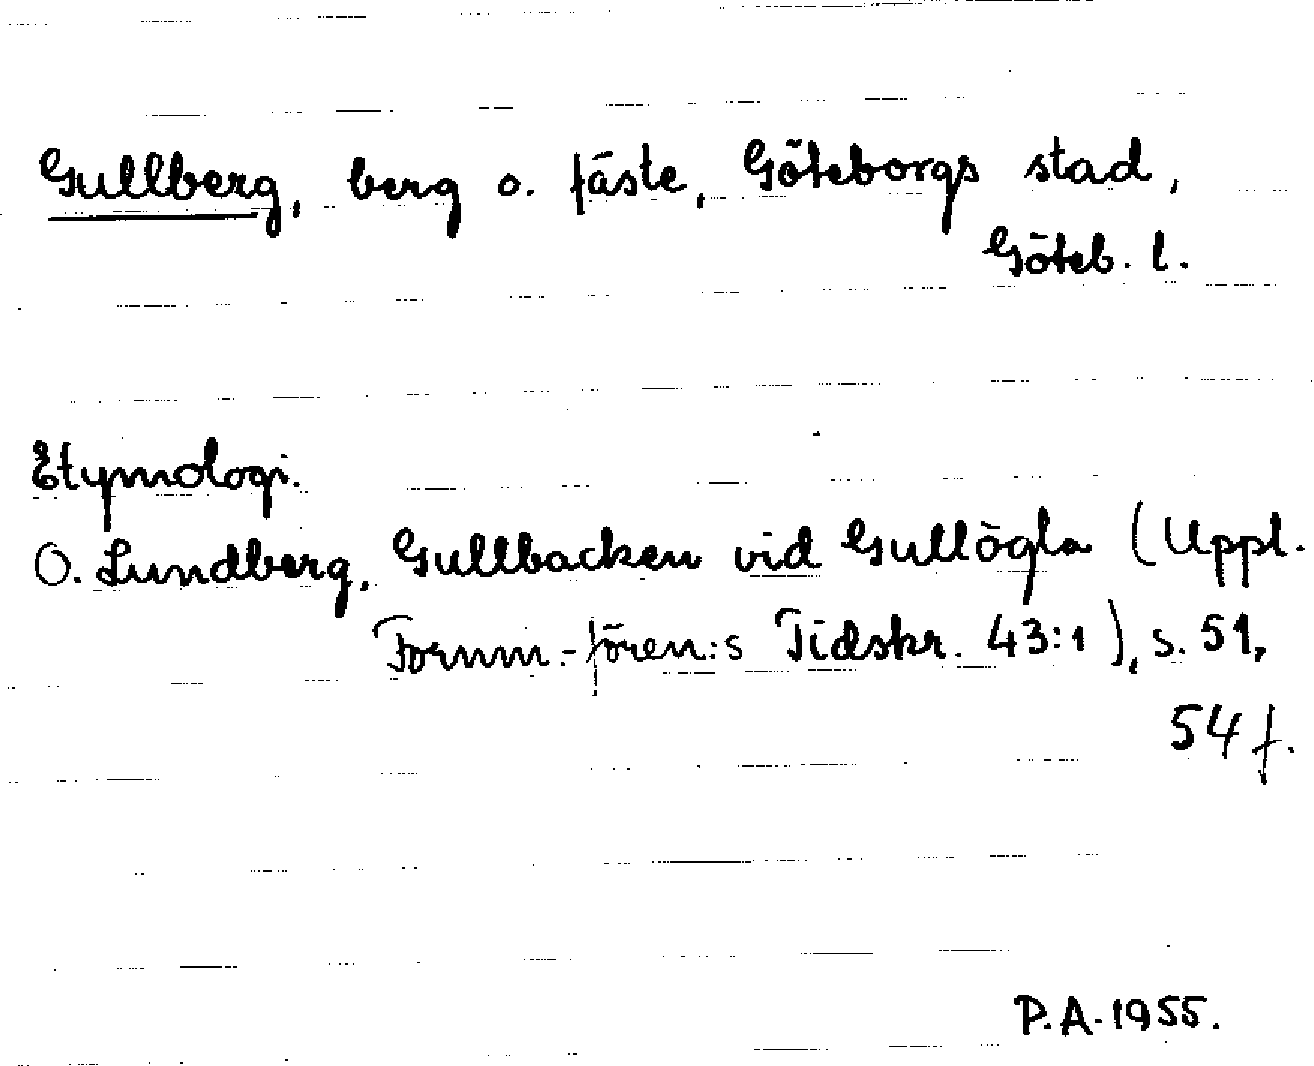 Gullberg, berg o. fäste, Göteborgs stad,
Göteb. l.
Etymologi.
O. Lundberg, Gullbacken vid Gullögla (Uppl.
Fornm.-fören:s Tidskr. 43:1), s. 51,
54 f.
P.A. 1955.